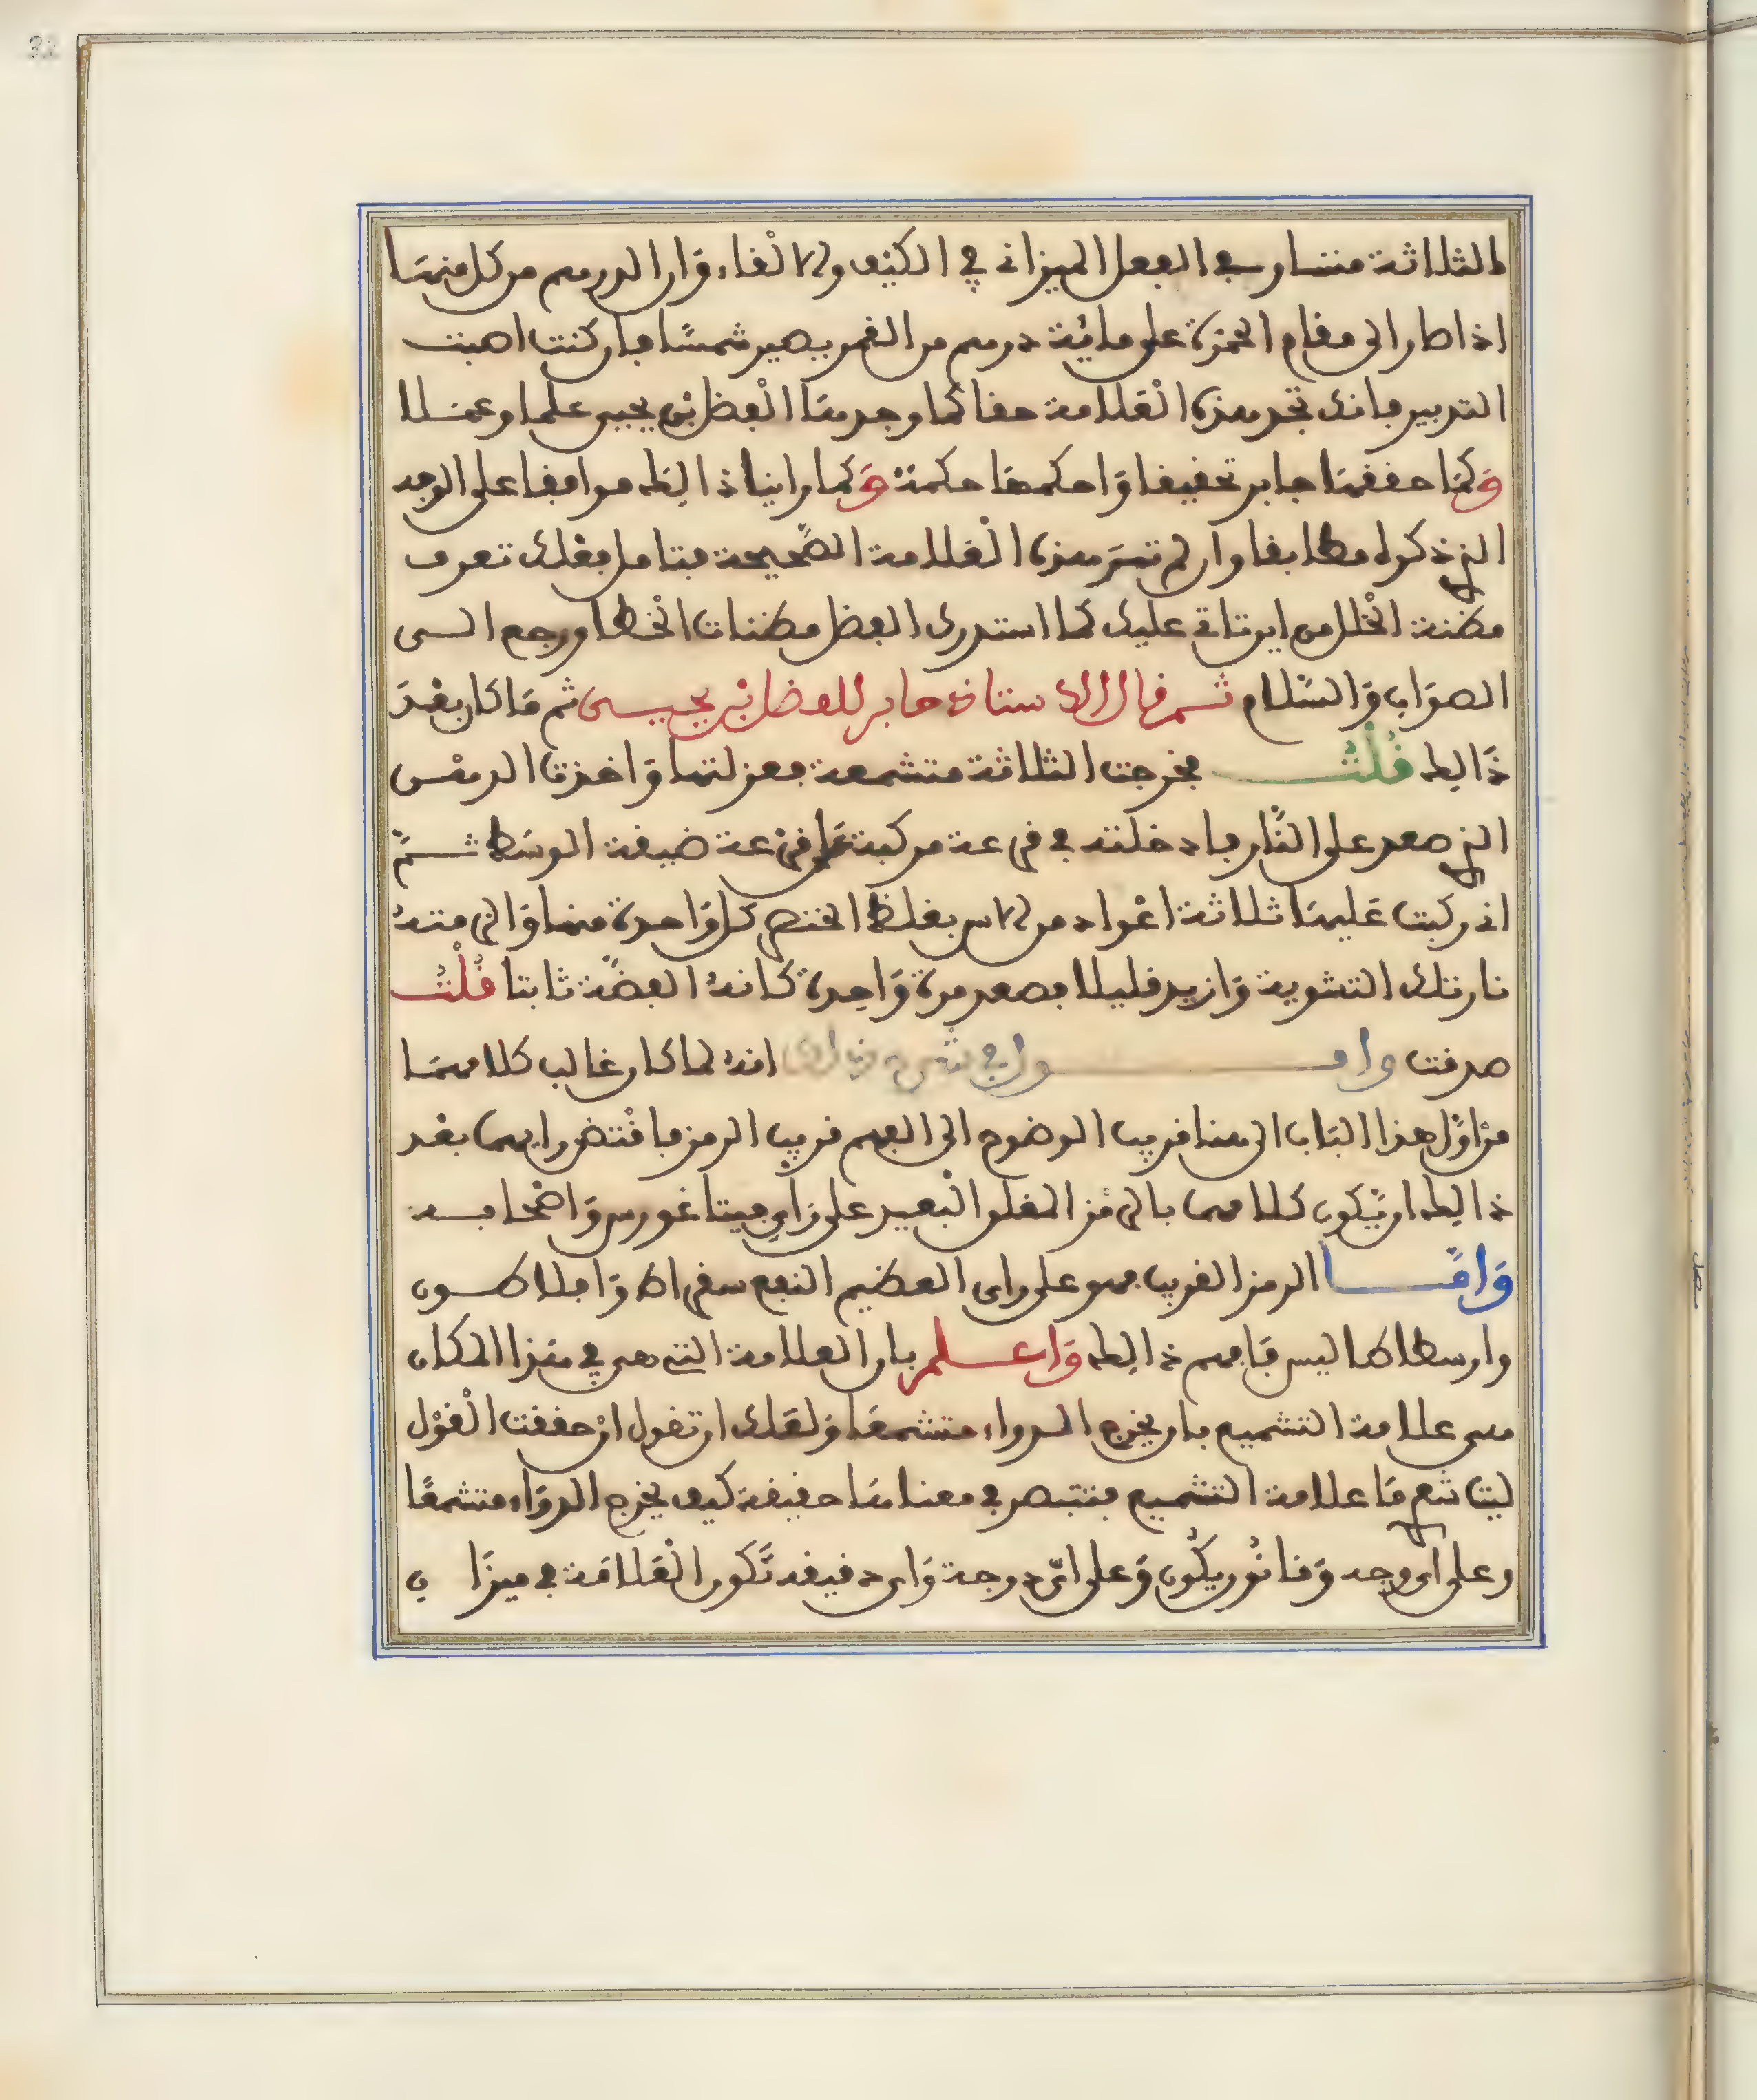 الثلاثة متساو في الفعل الميزاني في الكيف والالقاء وان الدرهم من كل منها
اذا طار الى مقام الحمرة على مائة درهم من القمر يصير شمسًا فان كنت اصبت
التدبير فانك تجد هذه العلامة حقا كما وجدها الفضل بن يحيى علما وعملا
وَكما حققها جابر تحقيقا وَاحكمها حكمة وَكما راينا ذالك موافقا على الوجه
الذي ذكره مطابقا وان لم تر هذه العلامة الصّحيحة فتامل بعقلك تعرف
مظنة الخلل من اين تاتي عليك كما استدرك الفضل مظنات الخطا ورجع الى
الصوَاب وَالسّلام ثم قال الاستاذ جابر للفضل بن يحيى ثم مَا كان بعْدَ
ذَالِك قُلْتُ فخرجت الثلاثة متشمعة فعزلتها وَاخذت الدهْن
الذي صعد على النّار فادخلته في قرعة مركبة على قرْعة ضيقة الوسَط ثمّ
اني ركبت عَليها ثلاثة اعْواد من اس بغلظ الخنصر كل وَاحدة منها وَالزمته
نار تلك التشوية وَازيد قليلا فصعد مرة وَاحِدة كانهُ الفضّة ثابتا قُلْتُ
صدقت وا انه لما كان غالب كلامهمَا
منْ اوّل هذا البَاب الى هنا قريب الوضوح الى الفهم قريب الرمز فاقْتضى رايهما بعْد
ذالِك ان يّكون كلامهما بالرمْز المغلق الْبعيد على رَايِ فيتاغورس وَاصْحابه
وَامّا الرمز القريب فهو على راى العظيم النفع سقراط وَافلاطون
وارسطاطاليس فَافهم ذالِك وَاعلم بان العلامة التي هي في هَذا المكان
هى علامة التشميع بان يخرج الدواء متشمعَا وَلعَلك ان تقول انْ حققت الْقوْل
ليتَ شعري مَا علامة التشميع فنتبصر في معناهَا حقيقة كيف يخرج الدوَاء متشمعًا
وعلى اي وجه وَقانُون يكُون وَعلى ايّ درجة وَاى دقيقه تّكون الْعَلامَة في ميزَان